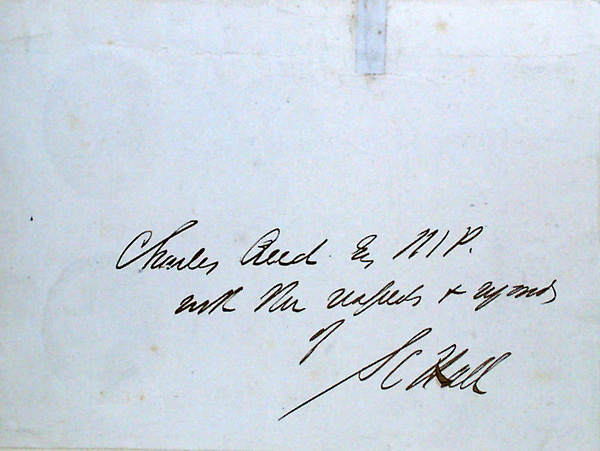 Charles Reed Esq M.P.
with the respects & regards
of
S C Hall